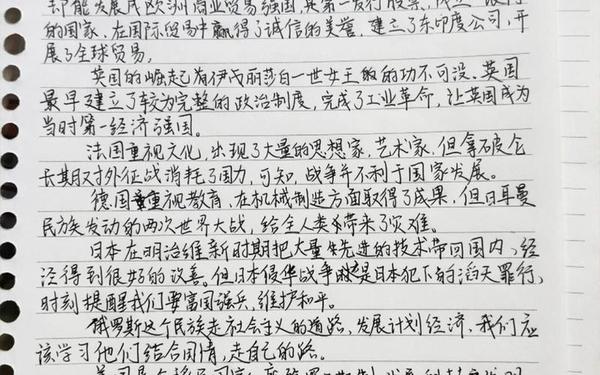 却能发展成欧洲商业贸易强国,其第一发行股票,成立
的国家,在国际贸易中赢得了诚信的美誉,建立了东印度公司,开
展了全球贸易。
英国的崛起有伊丽莎白一世女王的功不可没,英国
最早建立了较为完整的政治制度,完成了工业革命,让英国成为
当时第一经济强国。
法国重视文化,出现了大量的思想家,艺术家,但拿破仑
长期对外征战消耗了国力,可知,战争并不利于国家发展。
德国重视教育,在机械制造方面取得了成果,但日耳曼
民族发动的两次世界大战,给全人类带来了灾难。
日本在明治维新时期把大量先进的技术带回国内,经
济得到很好的改善。但日本侵华战争是日本犯下的滔天罪行,
时刻提醒我们要富国强兵,维护和平。
俄罗斯这个民族走社会主义的道路,发展计划经济,我们应
该学习他们结合国情,走自己的路。